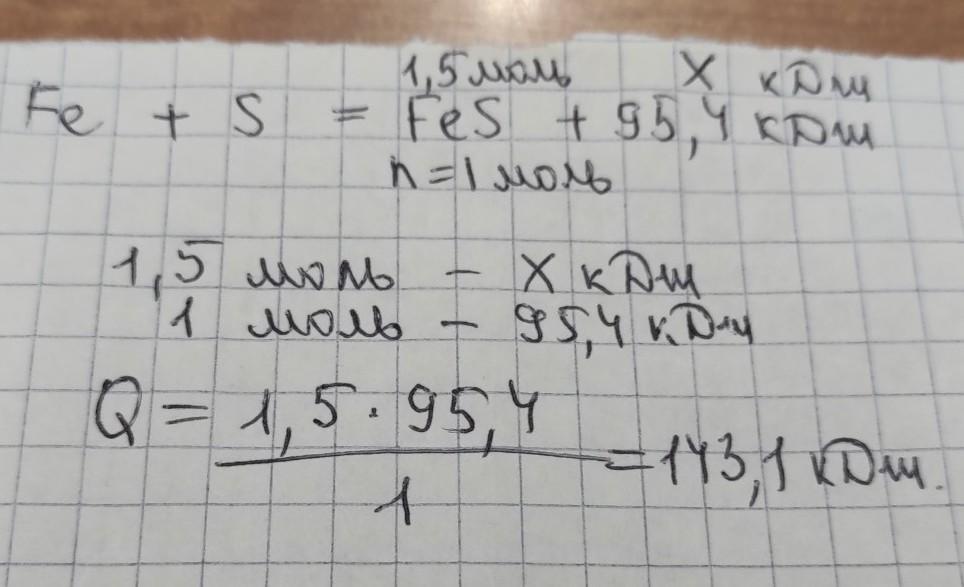 1,5 моль X кДж
Fe + S = FeS + 95,4 кДж
n = 1 моль
1,5 моль – X кДж
1 моль – 95,4 кДж
Q = 1,5 · 95,4
1
= 143,1 кДж.